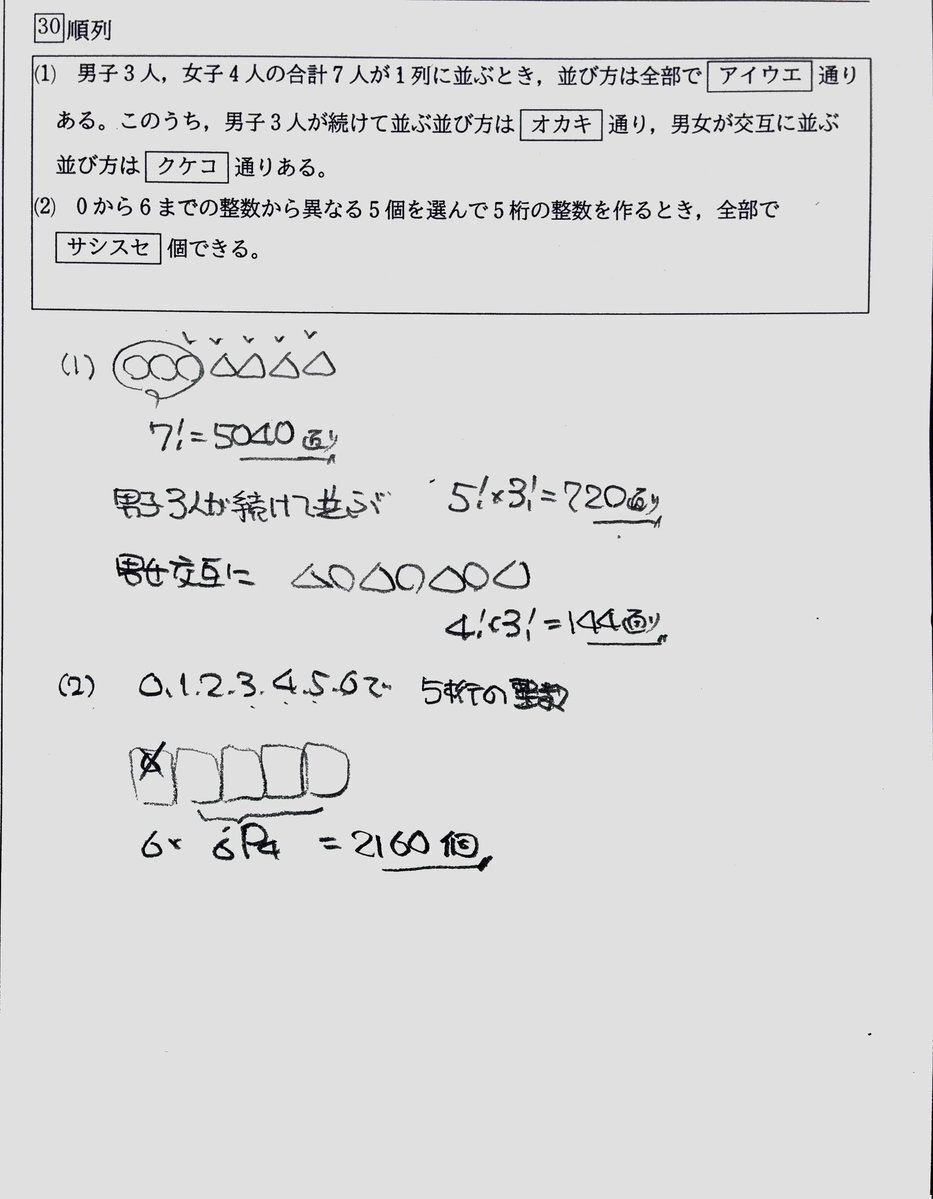 30 順列
(1) 男子3人，女子4人の合計7人が1列に並ぶとき，並び方は全部で アイウエ 通り
ある。このうち，男子3人が続けて並ぶ並び方は オカキ 通り，男女が交互に並ぶ
並び方は クケコ 通りある。
(2) 0から6までの整数から異なる5個を選んで5桁の整数を作るとき，全部で
サシスセ 個できる。
(1)
7!=5040通り
男子3人が続けて並ぶ 5!×3!=720通り
男女交互に
4!×3!=144通り
(2) 0.1.2.3.4.5.6で 5桁の整数
0
6× 6P4 = 2160個